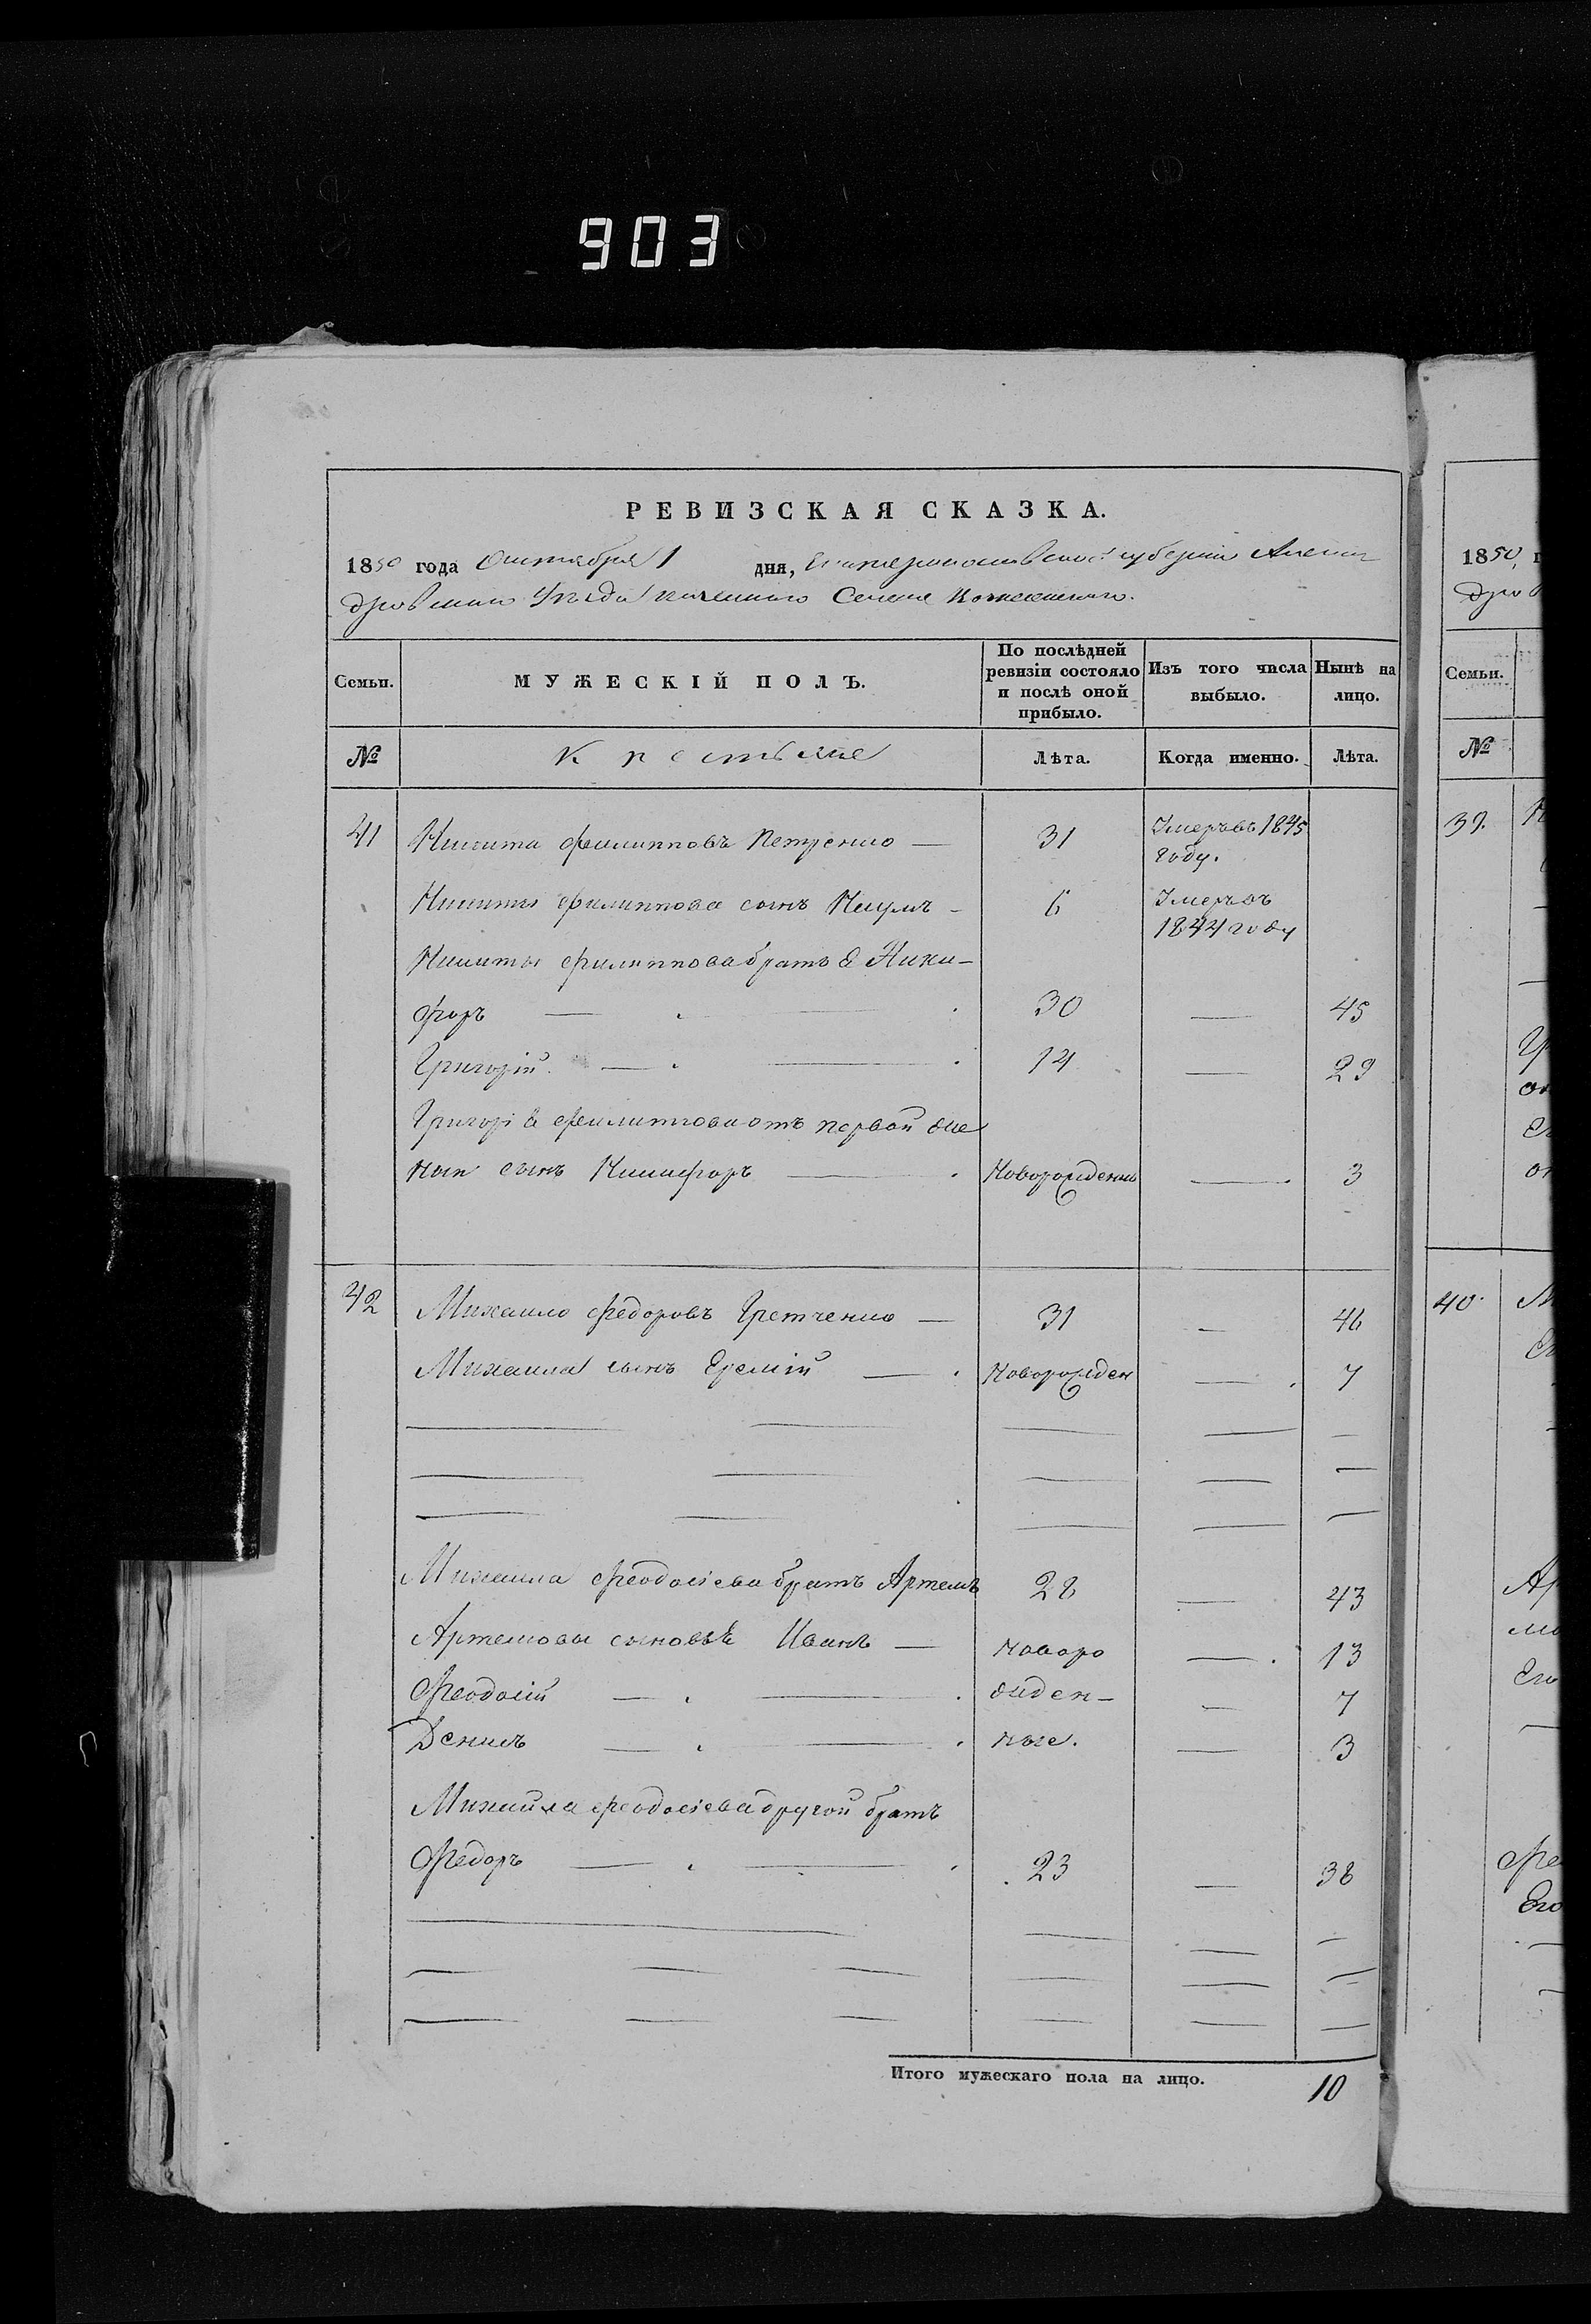 903
РЕВИЗСКАЯ СКАЗКА.
1850 года Октября 1 дня, Екатеринославской губернiи Алексан
дровскаго Уѣзда казеннаго Селенiя
Семьи. МУЖЕСКІЙ ПОЛЪ. По послѣдней ревизіи состояло и послѣ оной прибыло. Изъ того числа выбыло. Нынѣ на лицо.
№ Крестьяне Лѣта. Когда именно. Лѣта.
41 Никита Филипповъ Петренко — 31 Умеръ въ 1845 году.
Никиты Филиппова сынъ Наумъ — 6 Умеръ въ 1844 году
Никиты Филиппова братья Ники-
форъ — 30 — 45
Григорій — 14 — 29
Григорія Филиппова отъ первой же
ны сынъ Никифоръ — Новорожденны — 3
42 Михаило Федоровъ Гретченко — 31 — 46
Михаила сынъ Еремій — Новорожден — 7
Михаила Феодосіева братъ Артемъ 28 — 43
Артемовы сыновья Иванъ — новоро — 13
Феодосій — жден- — 7
Денисъ — ные. — 3
Михайла Феодосіева другой братъ
Федоръ — 23 — 38
Итого мужескаго пола на лицо. 10
1850, г
дров
Семьи.
№
39.
40. М